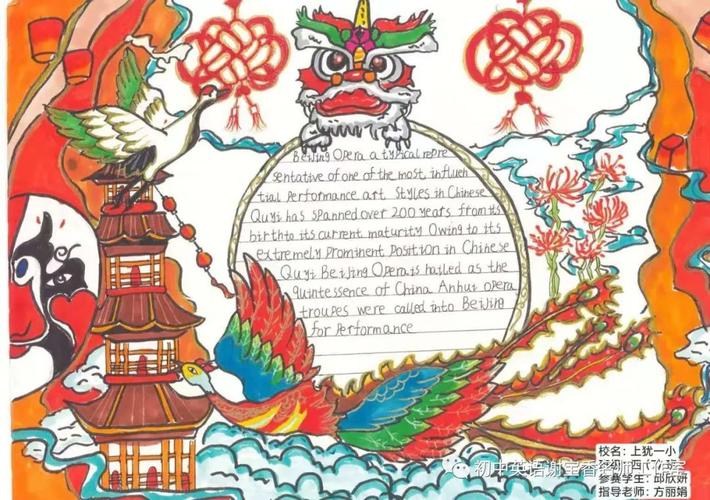 Beijing Opera a typical repre
sentative of one of the most influen
tial performance art styles in Chinese
Quyi has spanned over 200 years from its
birth to its current maturity Owing to its
extremely prominent position in Chinese
Quyi Beijing Opera is hailed as the
quintessence of China Anhui opera
troupes were called into Beijing
for performance
校名：上犹一小
参赛学生：邱欣妍
指导老师：方丽娟
初中英语谢宝香名师工作室